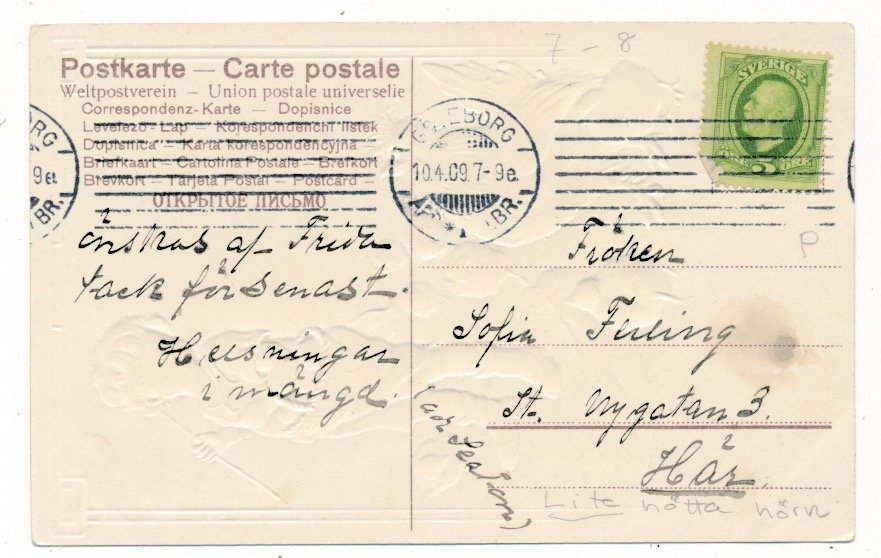 7 - 8
Postkarte — Carte postale
Weltpostverein — Union postale universelle
Correspondenz-Karte — Dopisnice
Levelező-Lap — Korespondenčni listek
Dopisnica — Karta korespondencyjna
Briefkaart — Cartolina Postale — Brefkort
Brevkort — Tarjeta Postal — Postcard —
ОТКРЫТОЕ ПИСЬМО
GÖTEBORG
10.4.09.7-9e.
AFG. BR.
SVERIGE
5 ÖRE
önskas af Frida
tack för senast.
Helsningar
i mängd.
Fröken
P
Sofia
St. Nygatan 3.
Här.
Lite nötta hörn